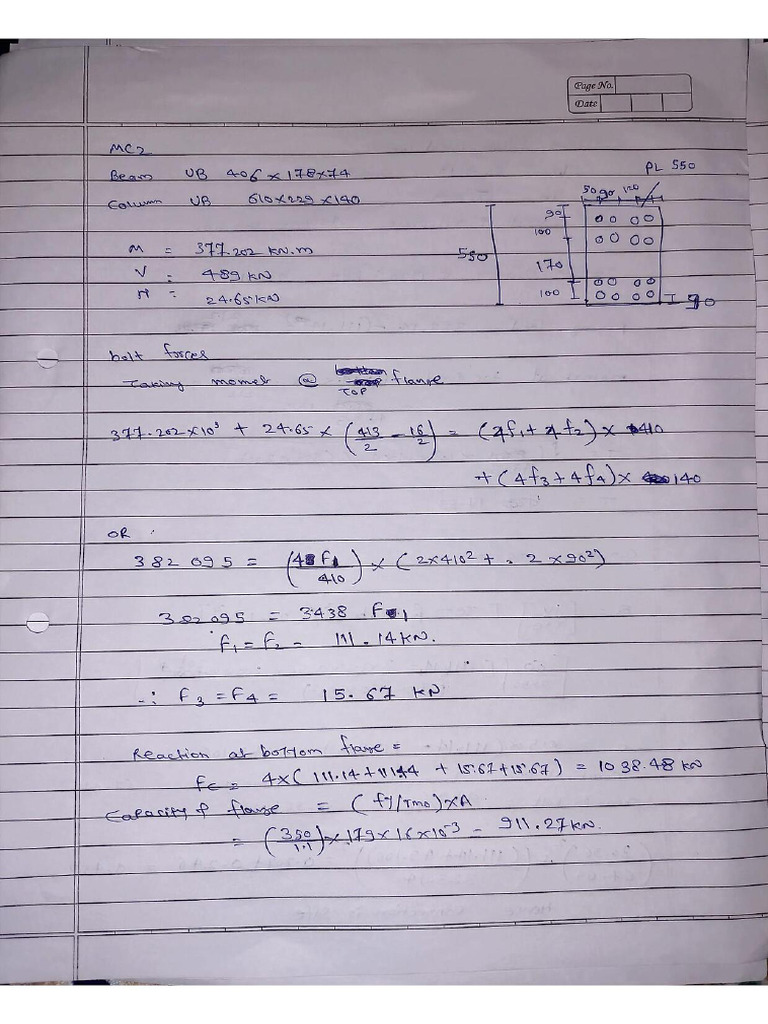 Page No.
Date
MC2
Beam UB 406 x 178 x 74
Column UB 610x229 x140
PL 550
50 90 120
90
100
550
170
100
90
M = 377.202 KN.m
V = 489 KN
= 24.65 KN
bolt forces
Taking moment @ TOP flange
377.202 x10³ + 24.65 x (413/2 - 16/2) = (4f1 + 4f2) x 410
+ (4f3 + 4f4) x 140
OR
382 095 = (4 F1/410) x (2x410² + 2 x 90²)
382095 = 3438 . F1
f1 = f2 = 111.14 KN.
∴ F3 = F4 = 15.67 KN
Reaction at bottom flange =
Fc = 4x ( 111.14 + 111.44 + 15.67 + 15.67 ) = 1038.48 KN
Capacity of flange = ( fy/γmo ) x A
= (350/1.1) x 179 x 16 x 10⁻³ = 911.27 KN.